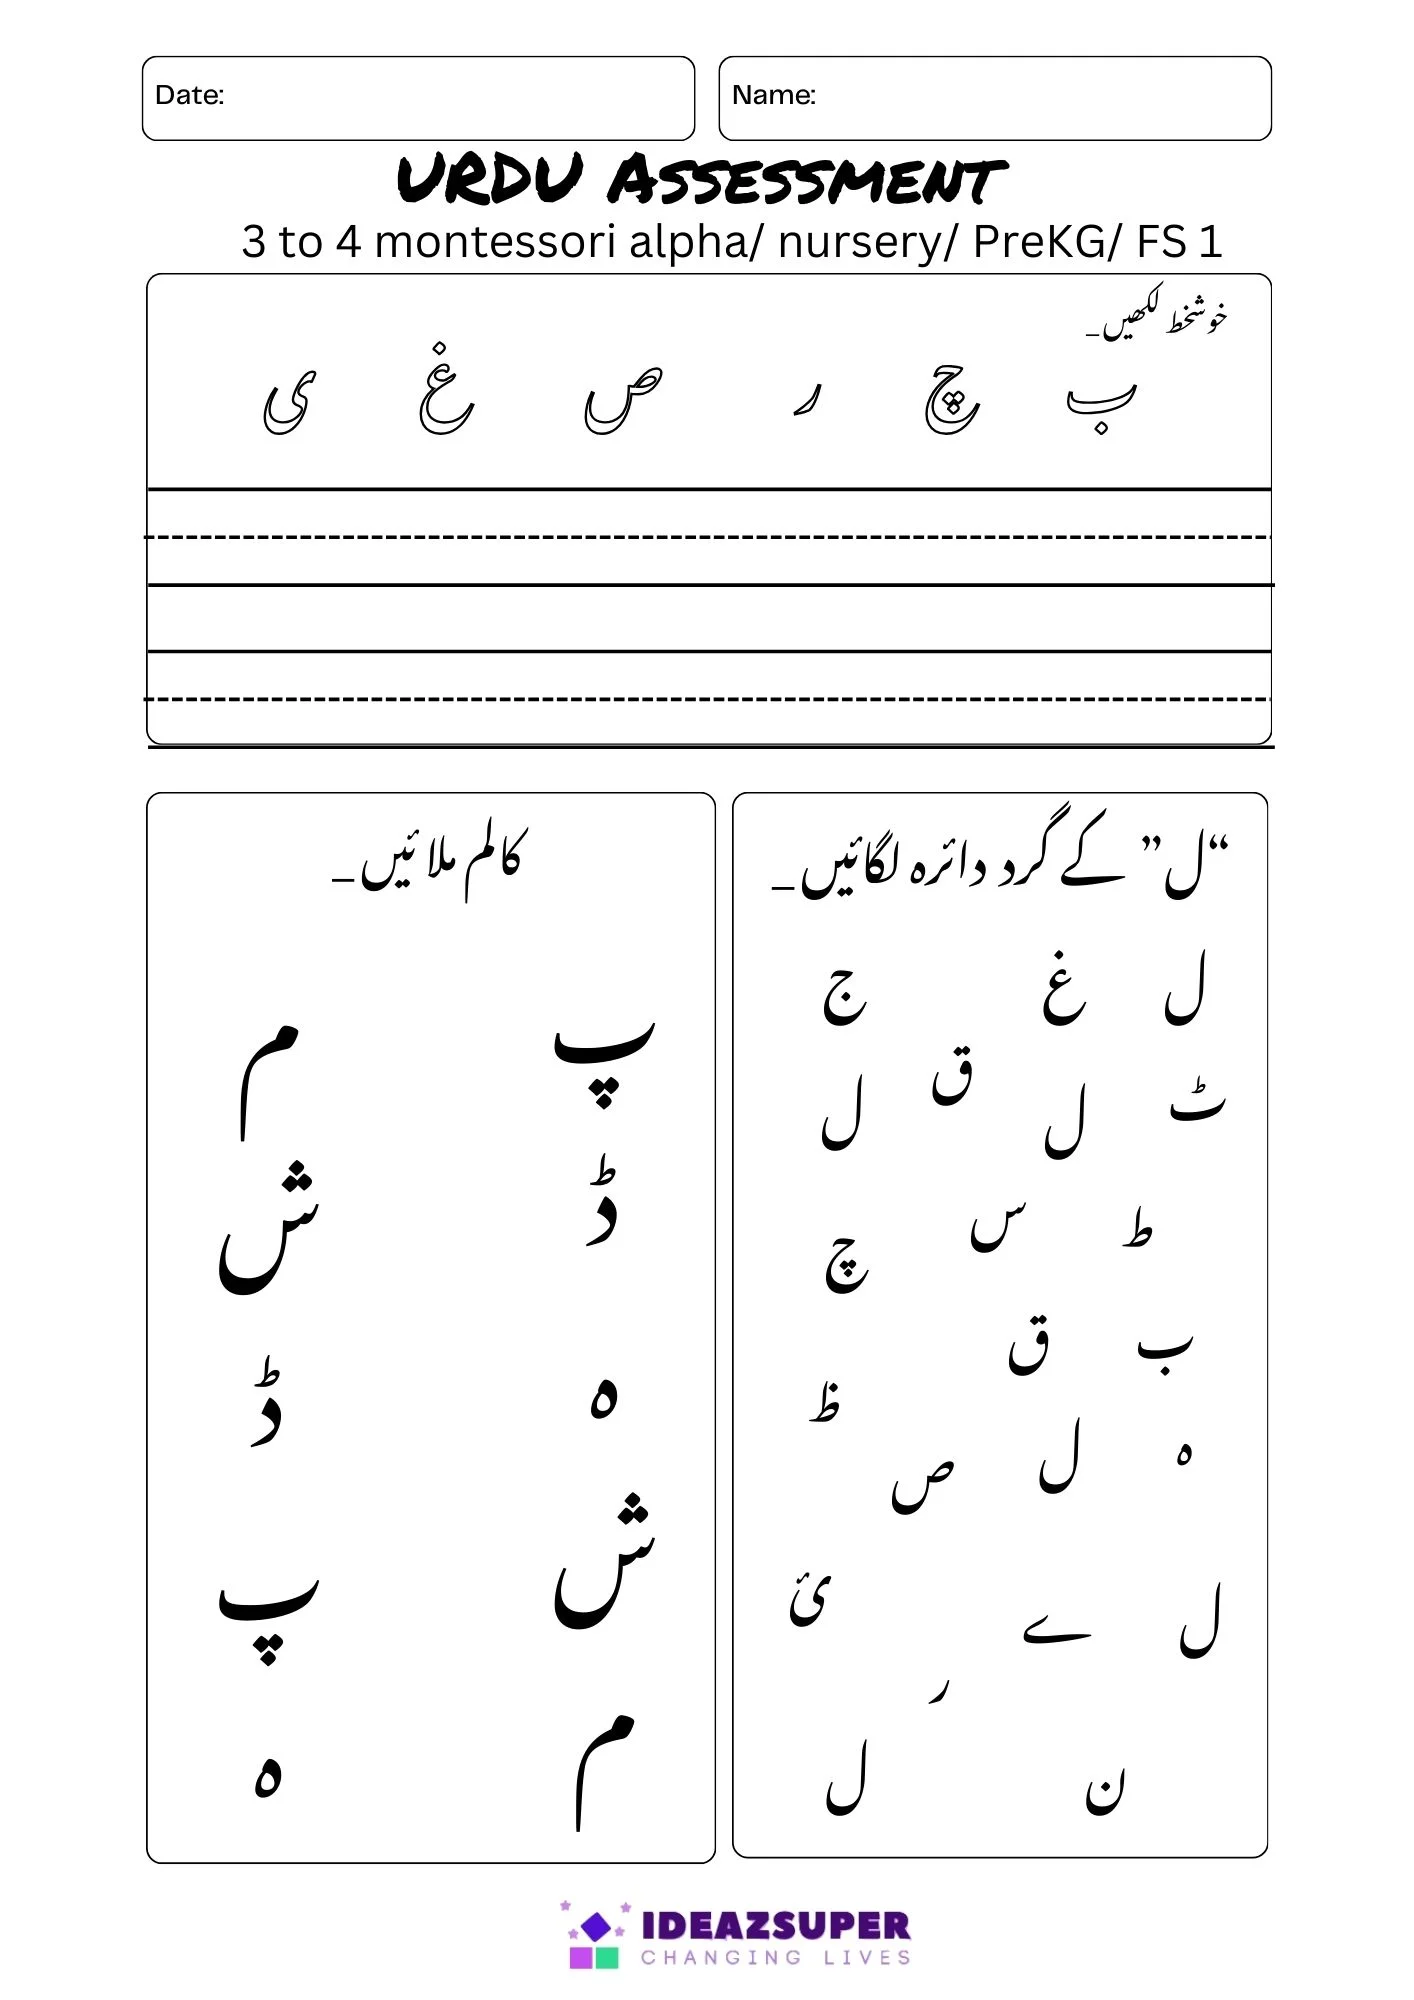 Date:
Name:
URDU ASSESSMENT
3 to 4 montessori alpha/ nursery/ PreKG/ FS 1
خوشخط لکھیں۔
ب چ ر ص غ ی
“ل” کے گرد دائرہ لگائیں۔
ل غ ج
ق
ٹ ل ل
ط س چ
ب ق
ظ
ہ ل ص
ل ے ئ
ر
ن ل
کالم ملائیں۔
پ م
ڈ ش
ہ ڈ
ش پ
م ہ
IDEAZSUPER
CHANGING LIVES